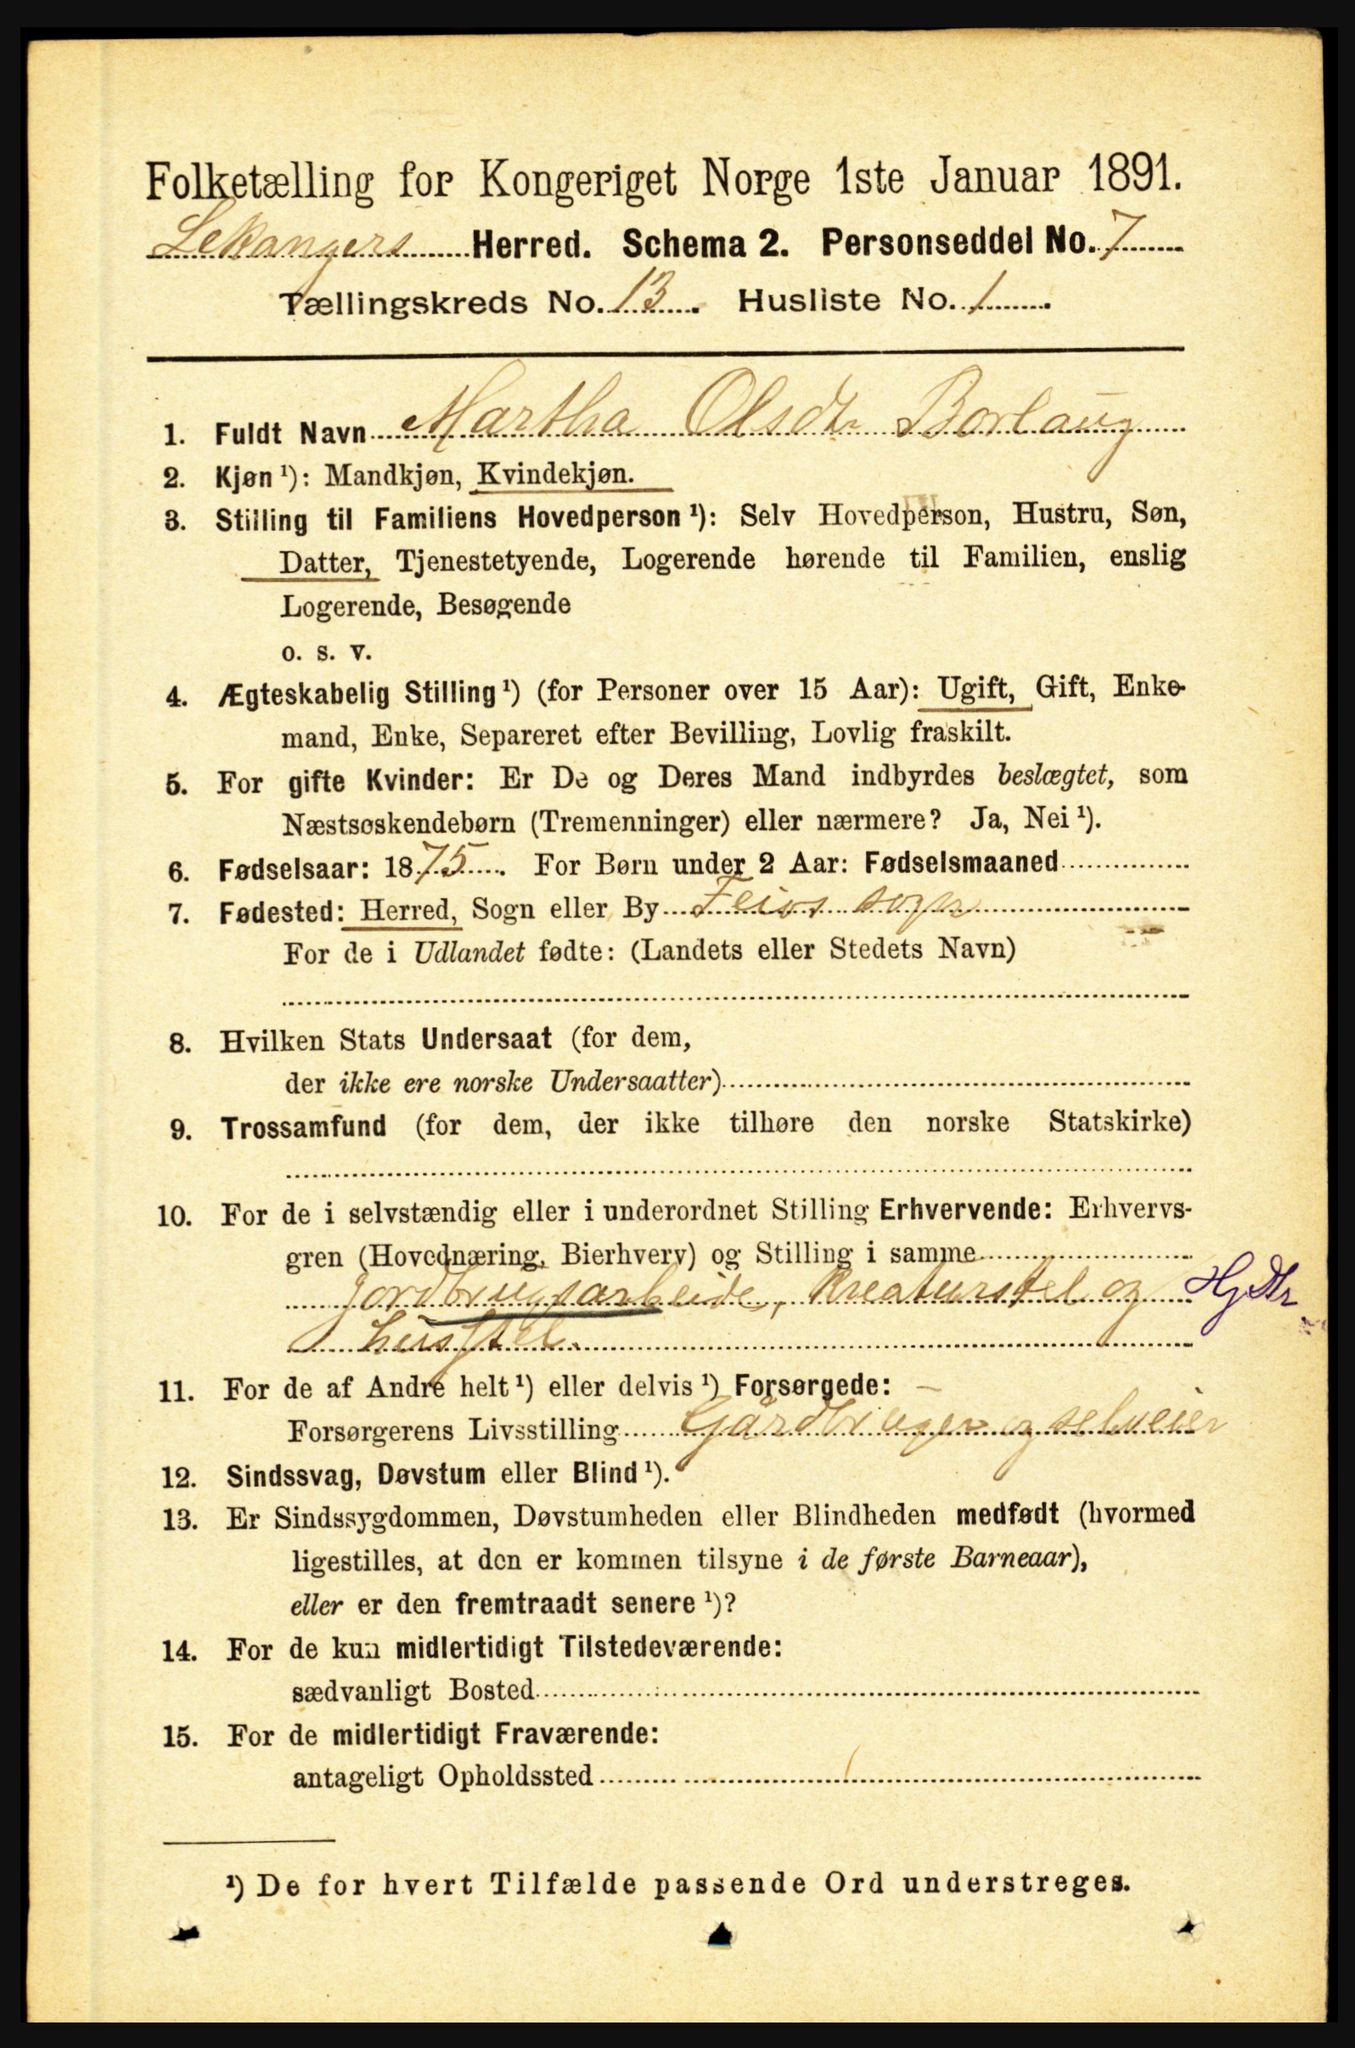 Folketælling for Kongeriget Norge 1ste Januar 1891.
Lekangers Herred. Schema 2. Personseddel No. 7
Tællingskreds No. 13. Husliste No. 1.
1. Fuldt Navn Martha Olsdtr Borlaug
2. Kjøn ¹): Mandkjøn, Kvindekjøn.
3. Stilling til Familiens Hovedperson ¹): Selv Hovedperson, Hustru, Søn,
Datter, Tjenestetyende, Logerende hørende til Familien, enslig
Logerende, Besøgende
o. s. v.
4. Ægteskabelig Stilling ¹) (for Personer over 15 Aar): Ugift, Gift, Enke-
mand, Enke, Separeret efter Bevilling, Lovlig fraskilt.
5. For gifte Kvinder: Er De og Deres Mand indbyrdes beslægtet, som
Næstsøskendebørn (Tremenninger) eller nærmere? Ja, Nei ¹).
6. Fødselsaar: 1875. For Børn under 2 Aar: Fødselsmaaned
7. Fødested: Herred, Sogn eller By Feios sogn
For de i Udlandet fødte: (Landets eller Stedets Navn)
8. Hvilken Stats Undersaat (for dem,
der ikke ere norske Undersaatter)
9. Trossamfund (for dem, der ikke tilhøre den norske Statskirke)
10. For de i selvstændig eller i underordnet Stilling Erhvervende: Erhvervs-
gren (Hovednæring, Bierhverv) og Stilling i samme
jordbrugsarbeide, kreaturstel og Hj Dtr
husstel.
11. For de af Andre helt ¹) eller delvis ¹) Forsørgede: —
Forsørgerens Livsstilling Gårdbruger og selveier
12. Sindssvag, Døvstum eller Blind ¹).
13. Er Sindssygdommen, Døvstumheden eller Blindheden medfødt (hvormed
ligestilles, at den er kommen tilsyne i de første Barneaar),
eller er den fremtraadt senere ¹)?
14. For de kun midlertidigt Tilstedeværende:
sædvanligt Bosted
15. For de midlertidigt Fraværende:
antageligt Opholdssted
¹) De for hvert Tilfælde passende Ord understreges.